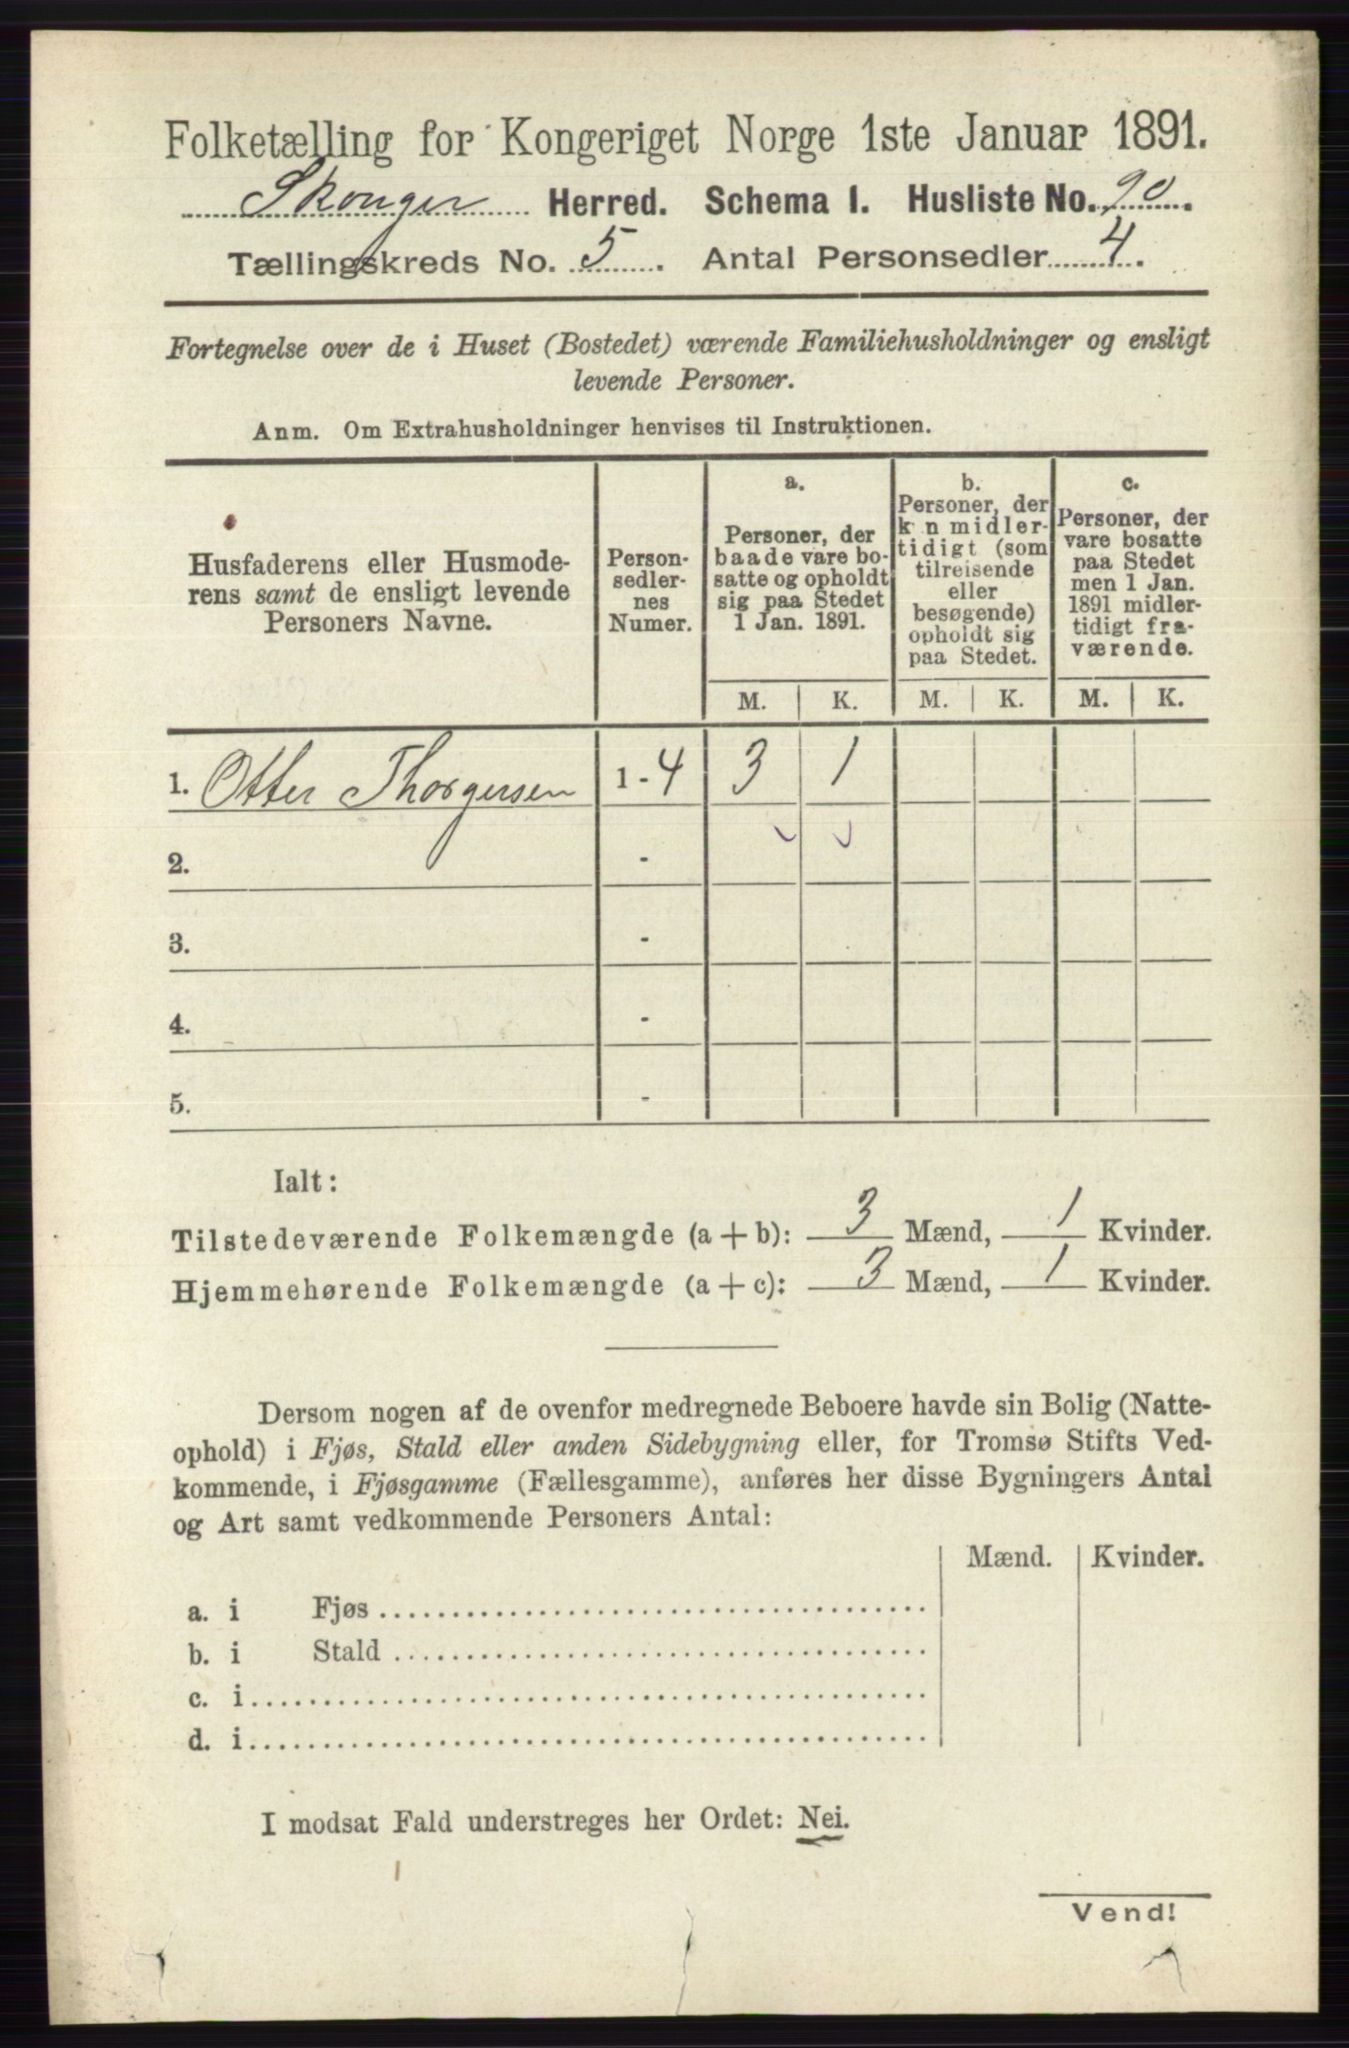 Folketælling for Kongeriget Norge 1ste Januar 1891.
Skouger Herred. Schema I. Husliste No. 90.
Tællingskreds No. 5. Antal Personsedler 4.
Fortegnelse over de i Huset (Bostedet) værende Familiehusholdninger og ensligt
levende Personer.
Anm. Om Extrahusholdninger henvises til Instruktionen.
Husfaderens eller Husmode-
rens samt de ensligt levende
Personers Navne.
Person-
sedler-
nes
Numer.
a.
Personer, der
baade vare bo-
satte og opholdt
sig paa Stedet
1 Jan. 1891.
b.
Personer, der
k n midler-
tidigt (som
tilreisende
eller
besøgende)
opholdt sig
paa Stedet.
c.
Personer, der
vare bosatte
paa Stedet
men 1 Jan.
1891 midler-
tidigt fra-
værende.
M. K. M. K. M. K.
1. Otter Thorgersen 1-4 3 1
2. -
3. -
4. -
5. -
Ialt:
Tilstedeværende Folkemængde (a+b): 3 Mænd, 1 Kvinder.
Hjemmehørende Folkemængde (a+c): 3 Mænd, 1 Kvinder.
Dersom nogen af de ovenfor medregnede Beboere havde sin Bolig (Natte-
ophold) i Fjøs, Stald eller anden Sidebygning eller, for Tromsø Stifts Ved-
kommende, i Fjøsgamme (Fællesgamme), anføres her disse Bygningers Antal
og Art samt vedkommende Personers Antal:
Mænd. Kvinder.
a. i Fjøs
b. i Stald
c. i
d. i
I modsat Fald understreges her Ordet: Nei.
Vend!